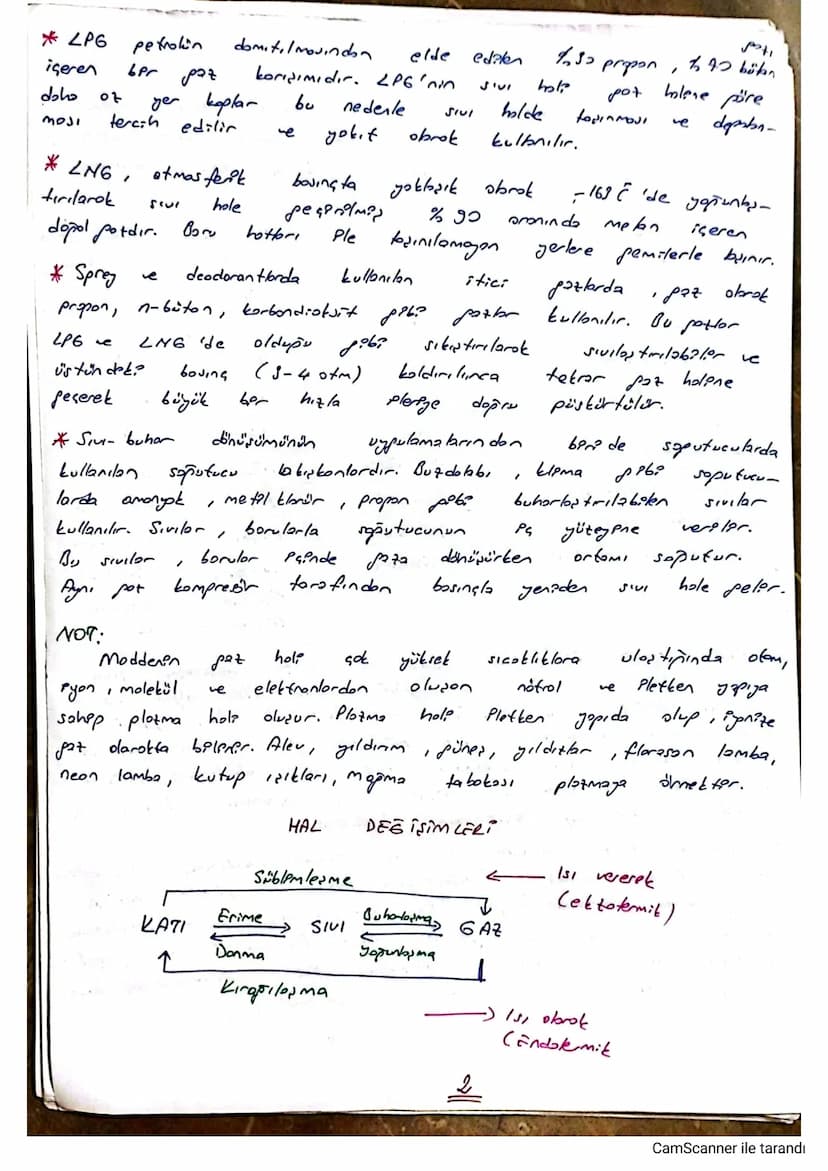 gazı
* LPG petrolün damıtılmasından elde edilen %30 propan, %70 bütan
içeren bir gaz karışımıdır. LPG'nin sıvı hali gaz haline göre
daha az yer kaplar bu nedenle sıvı halde taşınması ve depolan-
ması tercih edilir ve yakıt olarak kullanılır.
* LNG, atmosferik basınçta yaklaşık olarak -162 C'de yoğunlaş-
tırılarak sıvı hale geçirilmiş %90 oranında metan içeren
doğal gazdır. Boru hatları ile taşınılamayan yerlere gemilerle taşınır.
* Sprey ve deodorantlarda kullanılan itici gazlarda, gaz olarak
propan, n-bütan, karbondioksit gibi gazlar kullanılır. Bu gazlar
LPG ve LNG'de olduğu gibi sıkıştırılarak sıvılaştırılabilir ve
üstündeki basınç (3-4 atm) kaldırılınca tekrar gaz haline
geçerek büyük bir hızla ileriye doğru püskürtülür.
* Sıvı-buhar dönüşümünün uygulamalarından biri de soğutucularda
kullanılan soğutucu akışkanlardır. Buzdolabı, klima gibi soğutucu-
larda amonyak, metil klorür, propan gibi buharlaştırılabilen sıvılar
kullanılır. Sıvılar, borularla soğutucunun iç yüzeyine verilir.
Bu sıvılar, borular içinde gaza dönüşürken ortamı soğutur.
Aynı gaz kompresör tarafından basınçla yeniden sıvı hale gelir.
NOT:
Maddenin gaz hali çok yüksek sıcaklıklara ulaştığında atom,
iyon, molekül ve elektronlardan oluşan nötral ve iletken yapıya
sahip plazma hali oluşur. Plazma hali iletken yapıda olup, iyonize
gaz olarakta bilinir. Alev, yıldırım, güneş, yıldızlar, florasan lamba,
neon lamba, kutup ışıkları, magma tabakası plazmaya örnektir.
HAL DEĞİŞİMLERİ
Süblimleşme
← Isı vererek
(ektotermit)
KATI Erime SIVI Buharlaşma GAZ
Donma Yoğunlaşma
Kırağılaşma
→ Isı alarak
(Endotermit
2
CamScanner ile tarandı